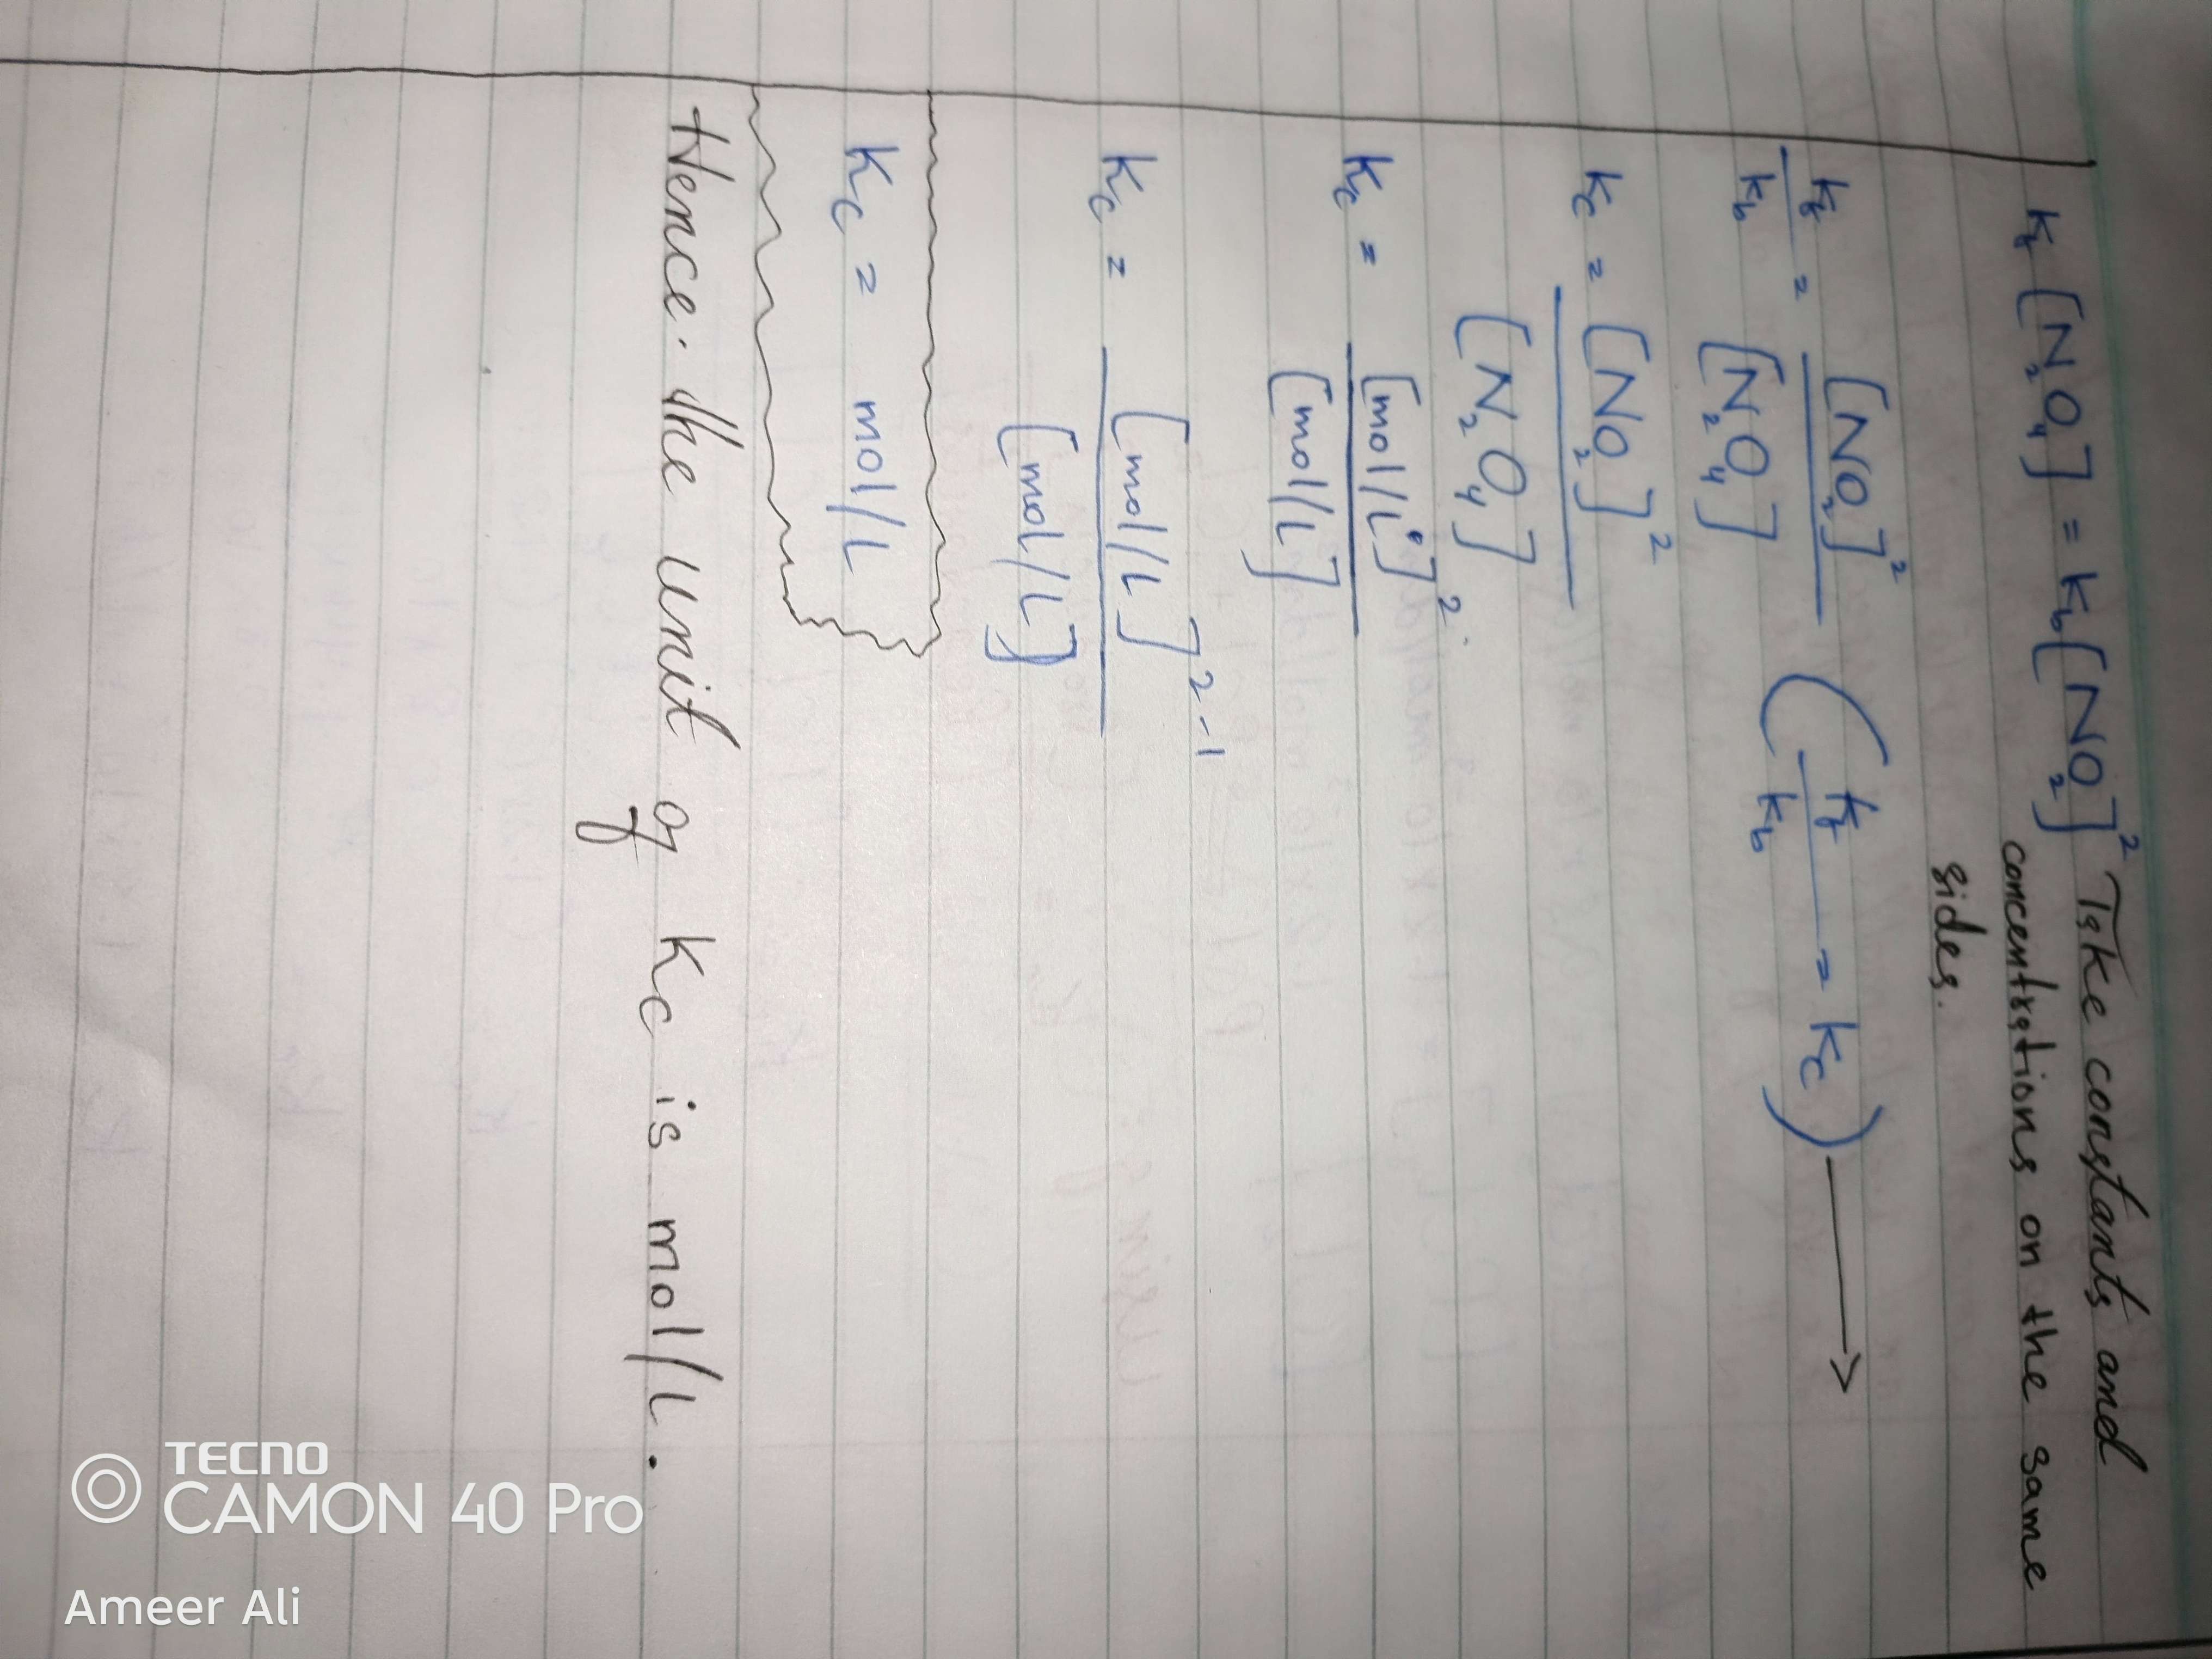 k_f [N₂O₄] = k_b [NO₂]² Take constants and
concentrations on the same
sides.
k_f / k_b = [NO₂]² / [N₂O₄] ( k_f / k_b = k_c ) →
k_c = [NO₂]² / [N₂O₄]
K_c = [mol/L]² / [mol/L]
K_c = [mol/L]²⁻¹ / [mol/L]
K_c = mol/L
Hence. the unit of K_c is mol/L.
TECNO
CAMON 40 Pro
Ameer Ali